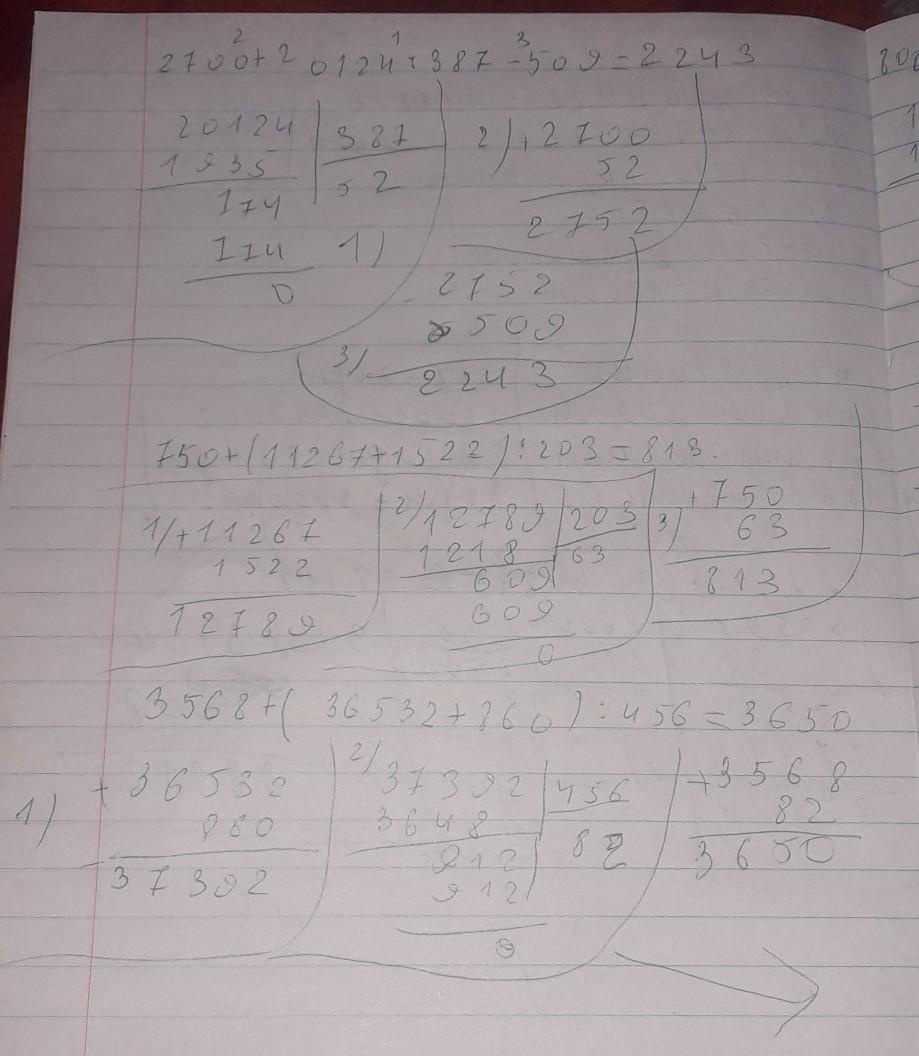 2 1 3
2700+20124:387-509=2243
20124 | 387
1935 | 52
174
174 1)
0
2) +2700
52
2752
2752
509
3)
2243
750+(11267+1522):203=813.
1) +11267
1522
12789
2) 12789 | 203
1218 | 63
609
609
0
3) +750
63
813
3568+(36532+860):456=3650
1) +36532
860
37392
2) 37392 | 456
3648 | 82
912
912
0
+3568
82
3650